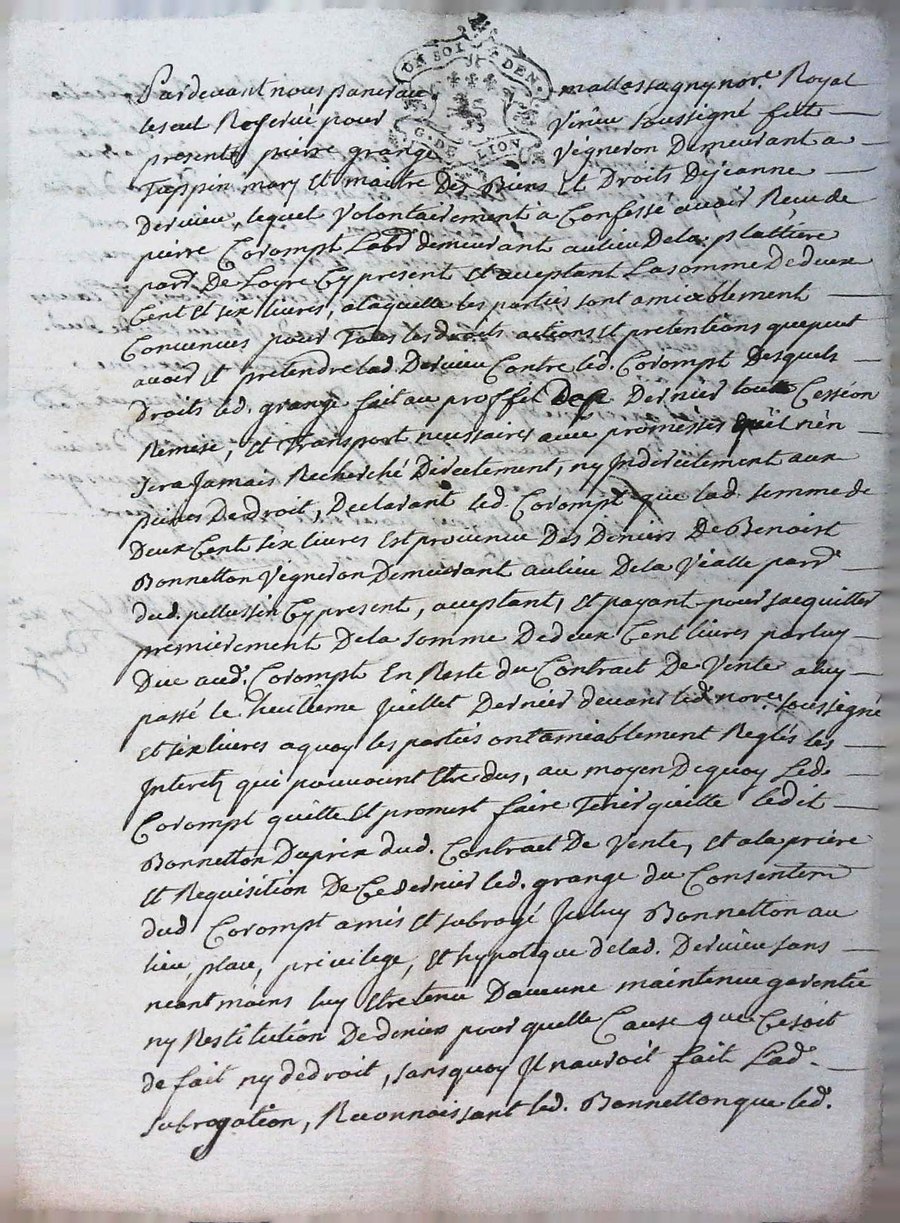 UN SOL . DEN.
G. DE LION
Pardevant nous pancrace mallassagny nore. Royal
le seul Reservé pour Virieu soussigné fut
present pierre grange Vegneron Demeurant a
Tappin mary et maitre Des Biens et Droits De jeanne
Dervieu, lequel volontairement a Confessé avoir Receu de
pierre Corompt Labr. demeurant au lieu De la plattiere
parr. De Loyre Cy present et acceptant La somme De deux
Cent et six livres, a laquelle les parties sont amiablement
Convenues pour Tous les droits actions et pretentions que peut
avoir et pretendre lad. Dervieu Contre led. Corompt Desquels
Droits led. grange fait au proffet De Ce Dernier toutte Cession
Remise, et Transport necessaires avec promesses qu'il n'en
sera Jamais Recherché Directement, ny Indirectement aux
peines De droit, Declarant led. Corompt que lad. somme de
Deux Cent six livres est provenue Des Deniers De Benoist
Bonnetton Vegneron Demeurant au lieu De la Vialle parr.
dud. pellussin Cy present, acceptant, et payant pour s'acquitter
premierement De la somme De deux Cent livres par luy
Due aud. Corompt En Reste du Contract De Vente a luy
passé le huitieme juillet Dernier devant led. nore. soussigné
et six livres a quoy les parties ont amiablement Reglés les
Interets qui pouvoient etre dus, au moyen De quoy Led.
Corompt quitte et promest faire Tenir quitte ledit
Bonnetton Du prix dud. Contract De Vente, et a la priere
et Requisition De Ce dernier led. grange du Consentem
dud. Corompt a mis et subrogé Iceluy Bonnetton au
lieu, place, privilege, et hypoteque de lad. Dervieu sans
neantmoins luy etre tenu D'aucune maintenue garentie
ny Restitution De deniers pour quelle Cause que Ce soit
de fait ny de droit, sans quoy Il n'auroit fait Lad.
subrogation, Reconnoissant led. Bonnetton que led.